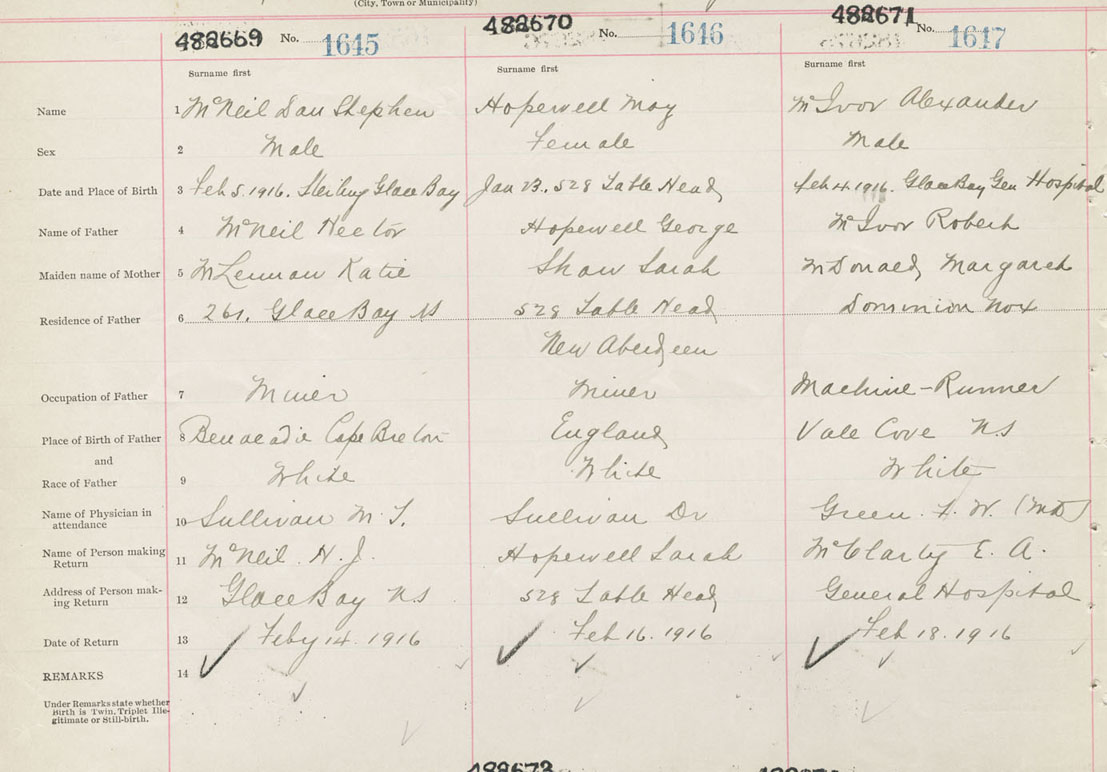 (City, Town or Municipality)
482669 No. 1645 482670 No. 1646 482671 No. 1647
Surname first Surname first Surname first
Name 1 McNeil Dan Stephen Hopewell May McIvor Alexander
Sex 2 Male Female Male
Date and Place of Birth 3 Feb 5. 1916. Sterling Glace Bay Jan 23. 528 Table Head Feb 4. 1916. Glace Bay Gen Hospital
Name of Father 4 McNeil Hector Hopewell George McIvor Robert
Maiden name of Mother 5 McLennan Katie Shaw Sarah McDonald Margaret
Residence of Father 6 Glace Bay NS 528 Table Head Dominion No x
New Aberdeen
Occupation of Father 7 Miner Miner Machine-Runner
Place of Birth of Father 8 Benacadie Cape Breton England Vale Cove N.S
and
Race of Father 9 White White White
Name of Physician in
attendance 10 Sullivan M. T. Sullivan Dr Green. F. W. (MD)
Name of Person making
Return 11 McNeil. H. J. Hopewell Sarah McClarty E. A.
Address of Person mak-
ing Return 12 Glace Bay N.S 528 Table Head General Hospital
Date of Return 13 Feby 14. 1916 Feb 16. 1916 Feb 18. 1916
REMARKS 14
Under Remarks state whether
Birth is Twin, Triplet Ille-
gitimate or Still-birth.
482673